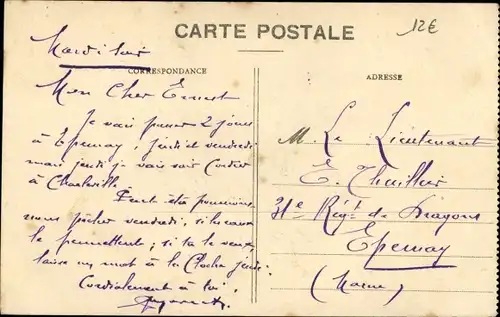 CARTE POSTALE
12€
Mardi soir
CORRESPONDANCE
ADRESSE
Mon Cher Ernest
Je vais passer 2 jours
à Epernay, jeudi et vendredi
mais jeudi je vais voir
à Charleville
Peut-être pourrions
nous pêcher vendredi, si les eaux
le permettent; si tu le veux
laisse un mot à la Cloche jeudi.
Cordialement à toi.
M. Le Lieutenant
E. Thuillier
31e Régt de Dragons
Epernay
(Marne)